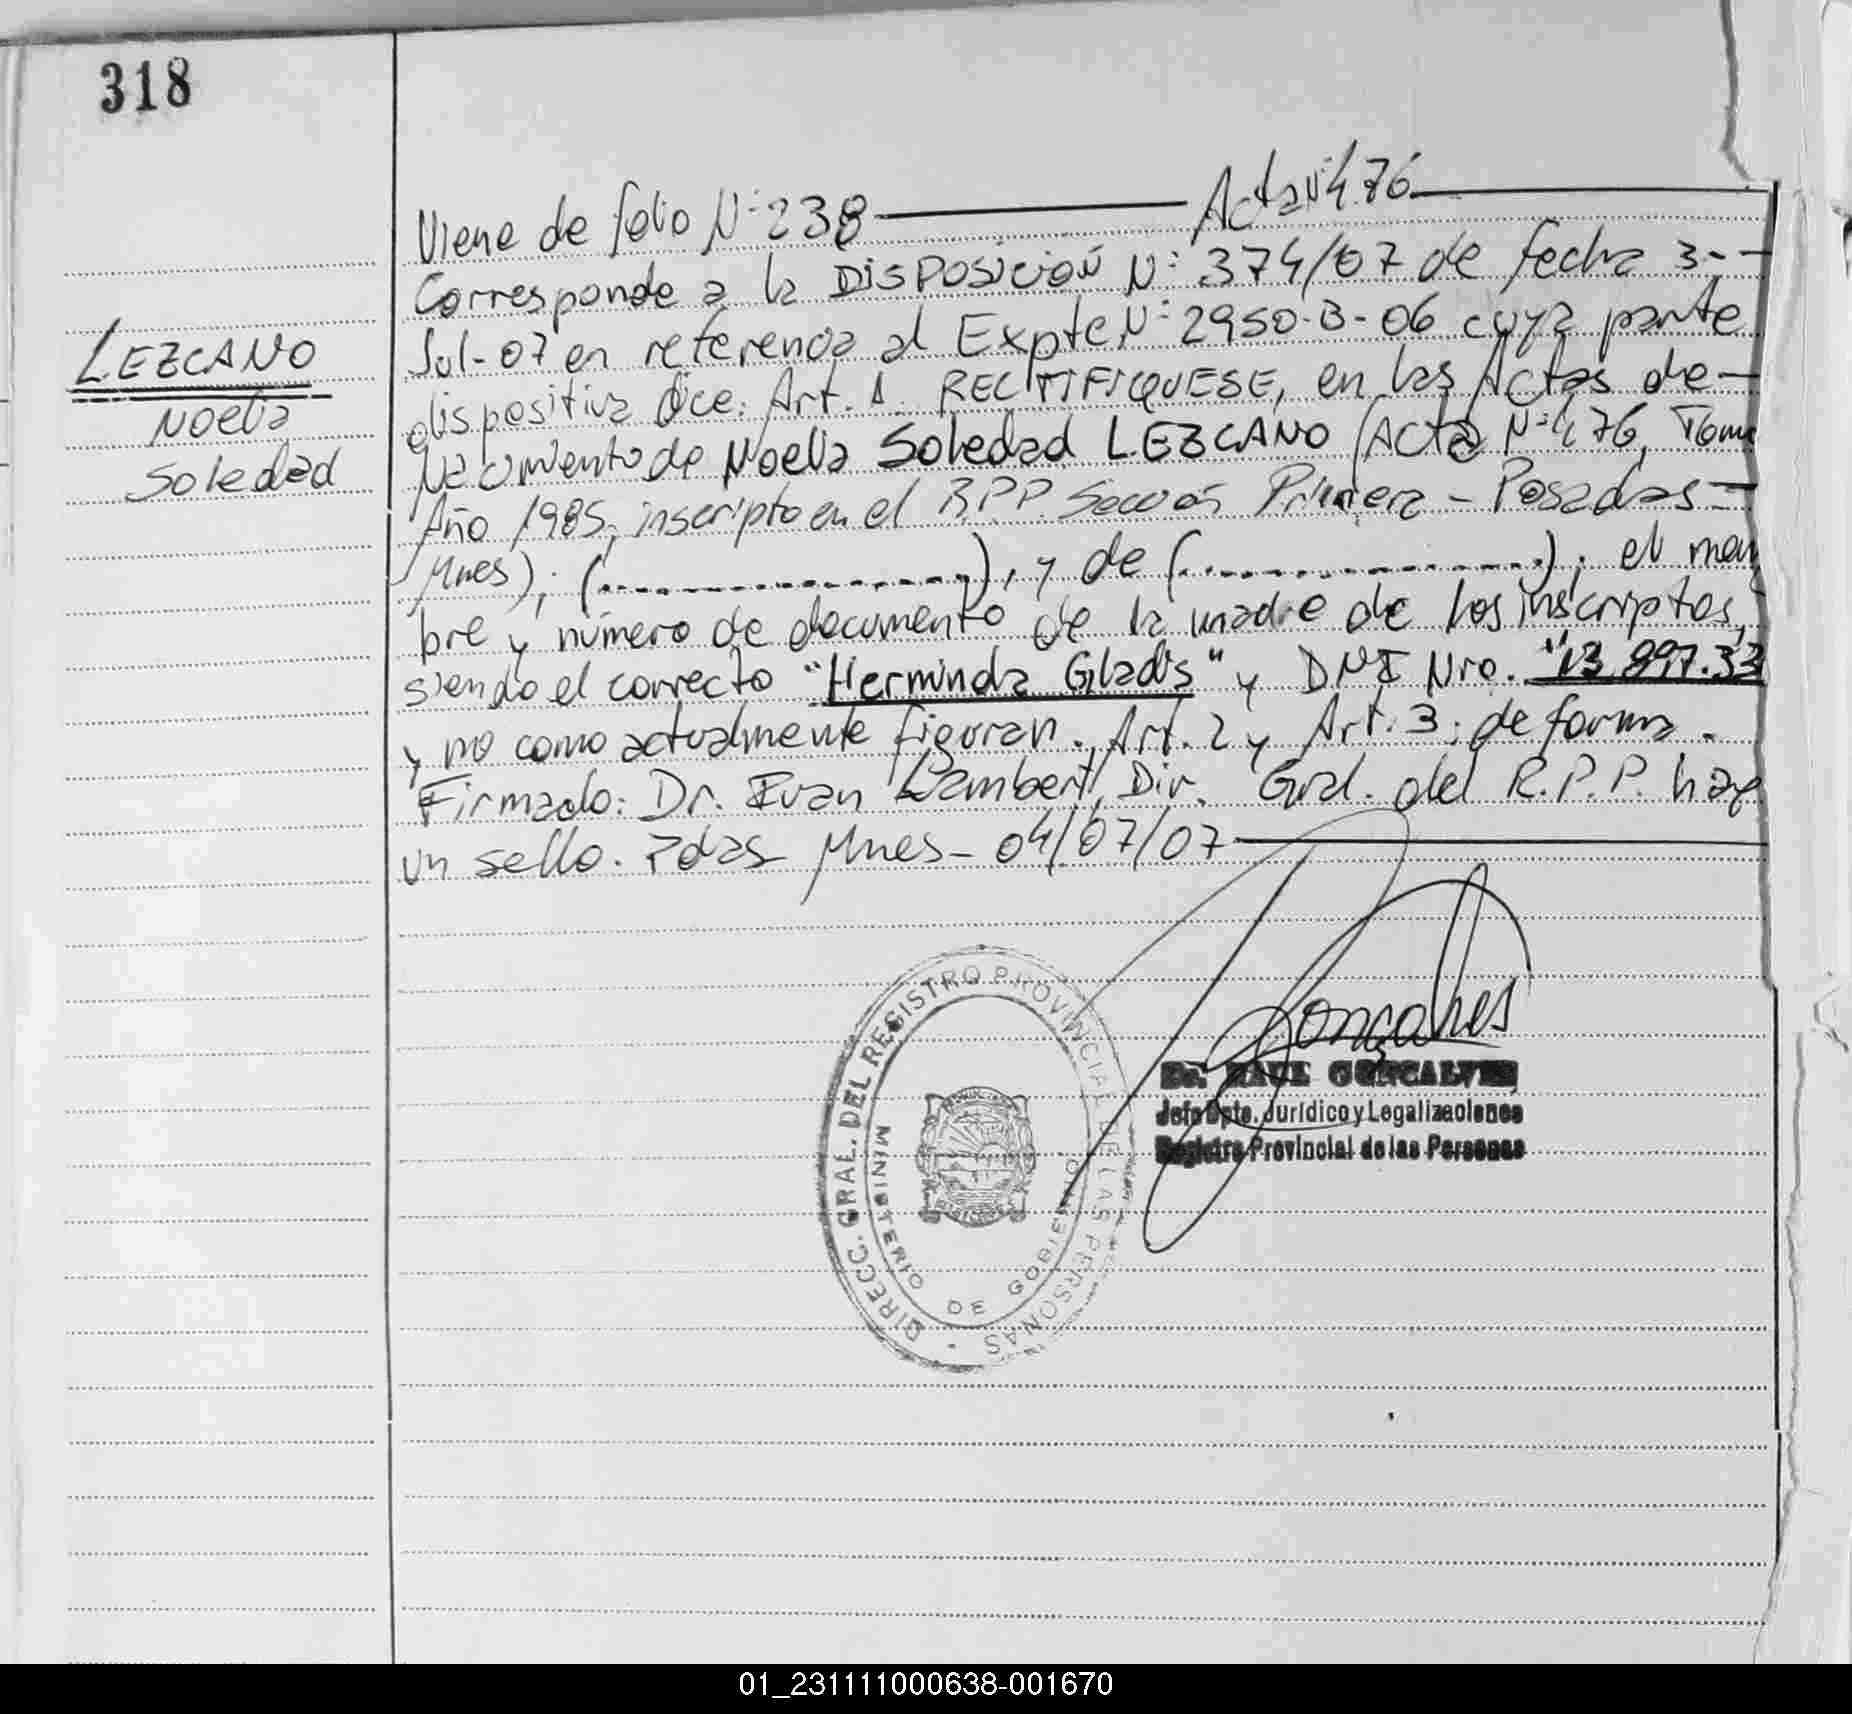 318
Viene de folio Nº 238 — Acta Nº 476 —
Corresponde a la DISPOSICIÓN Nº 374/07 de fecha 3--
Jul-07 en referencia al Expte. Nº 2950-B-06 cuya parte
dispositiva dice: Art. 1. RECTIFIQUESE, en las Actas de-
LEZCANO
Noelia
Soledad
Nacimiento de Noelia Soledad LEZCANO (Acta Nº 476, Tomo
Año 1985, inscripto en el R.P.P. Sección Primera - Posadas -
Mnes); (....................), y de (....................); el nom
bre y número de documento de la madre de los inscriptos,
siendo el correcto "Herminda Gladis" y DNI Nro. "13.997.33
y no como actualmente figuran. Art. 2 y Art. 3: de forma.
Firmado: Dr. Ivan Lambert, Dir. Gral. del R.P.P. hay
un sello. Pdas Mnes - 04/07/07 —
Gonçalves
Dr. RAUL GONÇALVES
Jefe Dpto. Jurídico y Legalizaciones
Registro Provincial de las Personas
DIRECC. GRAL. DEL REGISTRO PROVINCIAL DE LAS PERSONAS
MINISTERIO DE GOBIERNO
MISIONES
01_231111000638-001670